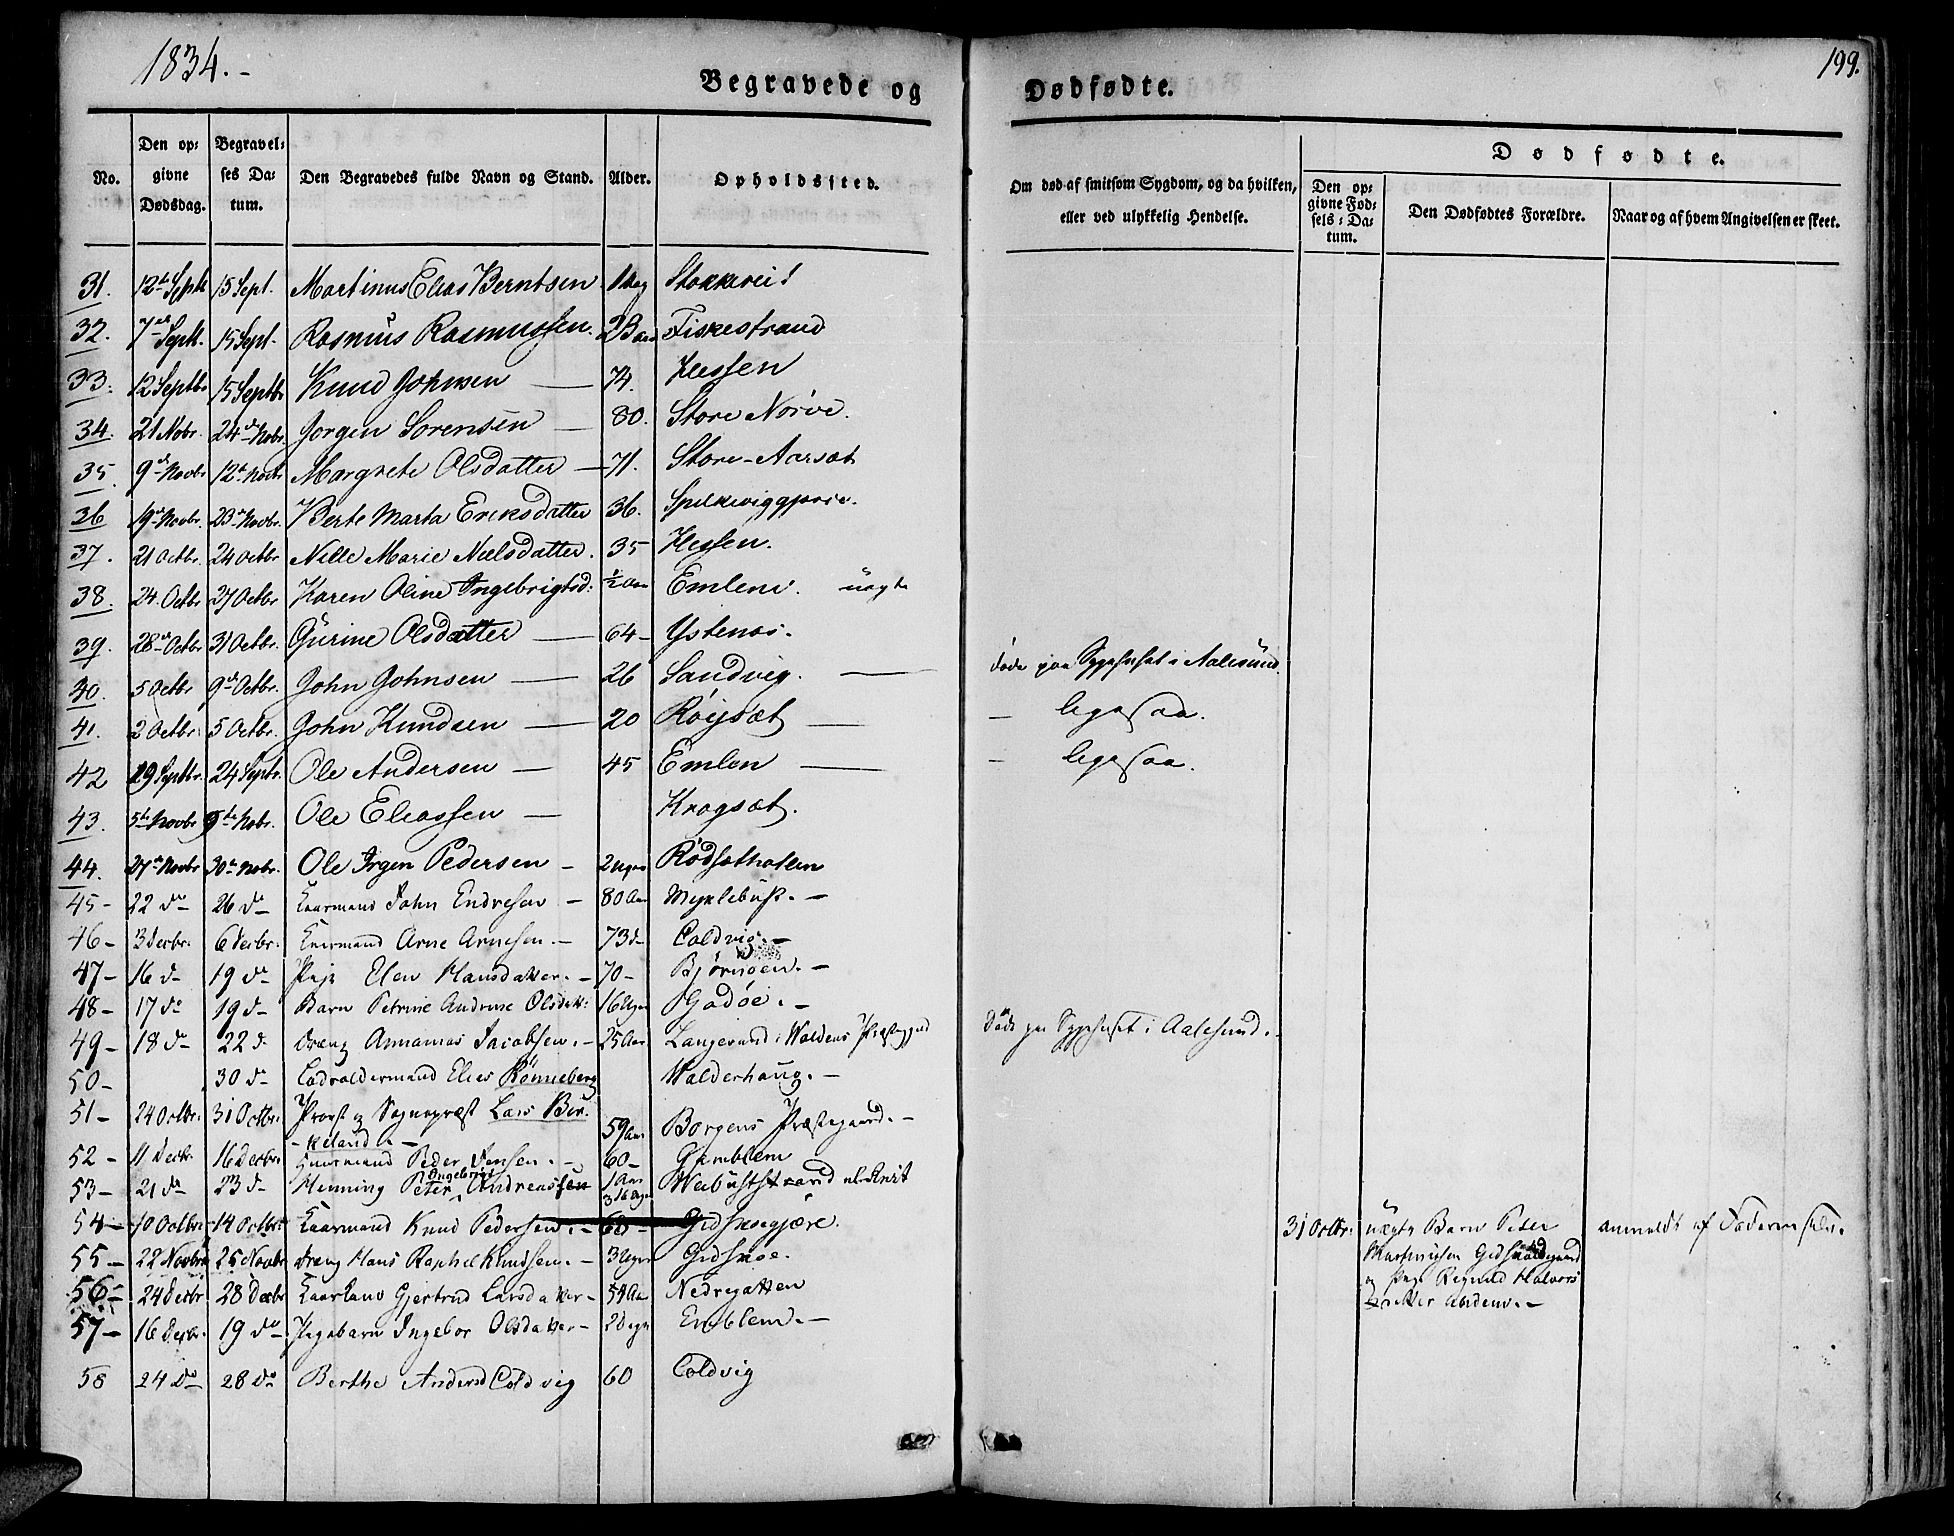 1834.-
199.
Begravede og Dødfødte.
No.
Den opgivne Dødsdag.
Begravelses Datum.
Den Begravedes fulde Navn og Stand.
Alder.
Opholdssted.
Om død af smitsom Sygdom, og da hvilken, eller ved ulykkelig Hendelse.
Dødfødte.
Den opgivne Fødsels-Datum.
Den Dødfødtes Forældre.
Naar og af hvem Angivelsen er skeet.
31. 12te Septb 15 Sept. Martinus Elias Berntsen 1 Dag
32. 7de Septb. 15 Sept. Rasmus Rasmussen. Fiskestrand
33. 12 Septbr 15 Septbr Knud Johnsen — 74. Hessen
34. 21 Nobr. 24de Nobr. Jorgen Sorensen — 80. Store Norve.
35. 9de Novbr 12te Novbr Margrete Olsdatter — 71. Store-Aarsæt
36 19de Novbr. 23de Novbr. Berte Marta Eriksdatter 36.
37. 21 Octbr. 24 Octbr. Nille Marie Nielsdatter. 35 Hessen.
38. 24. Octbr 27 Octbr Karen Oline Ingebrigtsd: ½ Aar Emlem. uægte
39. 28de Octbr 31 Octbr. Gurine Olsdatter — 64 - Ystenæs.
40. 5 Octbr 9de Octbr. John Johnsen — 26 Sandvig. — døde paa Sygehuset i Aalesund.
41. 2 Octbr. 5 Octbr. John Knudsen — 20 Röysæt — - ligesaa.
42 19 Septbr. 24 Septr. Ole Andersen — 45 Emlen — - ligesaa.
43. 5te Novbr 9de Nobr. Ole Eliassen — Krogsæt.
44. 27de Novbr 30te Nobr. Ole Irgen Pedersen - 2 Uger
45 - 22 do 26 do Kaarmand John Endresen - 80 Aar Myklebust. -
46 - 3 Decbr. 6 Decbr. Arne Arnesen. - 73 do Coldvig. -
47 - 16 do 19 do Pige Elen Hansdatter. - 70 - Bjørngen. -
48 - 17 do 19 do Barn Petrine Andrine Olsdatt: 16 Uger Godøe. -
49 - 18 do 22 do Dreng Annanias Jacobsen. - 25 Aar i Woldens Præstegjeld Døde paa Sygehuset i Aalesund. -
50 - 30 do Elias Rönneberg Walderhaug. -
51 - 24 Octbr. 31 Octbr. Provst og Sognepræst Lars Bir-
- keland. - 59 Aar Borgens Præstegaard. -
52 - 11 Decbr 16 Decbr. Gaarmand Peder Jensen. - 60 - Gamblem
53 - 21 do 23 do Henning Peter Ingebrigt Andreassen 1 Aar
54 - 10 Octbr. 14 Octbr. Kaarmand Knud Pedersen. - 68 - Gidskegjære.
31 Octbr. uægte Barn Peter anmeldt af Faderen selv.
55 - 22 Novbr 25 Novbr Dreng Hans Raphael Knudsen. - 3 Uger Gidskoe.
56 - 24 Decbr 28 Decbr Gjertrud Larsdatter - 54 Aar
og Pige Halvors
datter -
57 - 16 Decbr. 19 do Pigebarn Ingebor Olsdatter - 2 Dage Emblem. -
58 24 do 28 do Berthe Andersd Coldvig 60 Coldvig